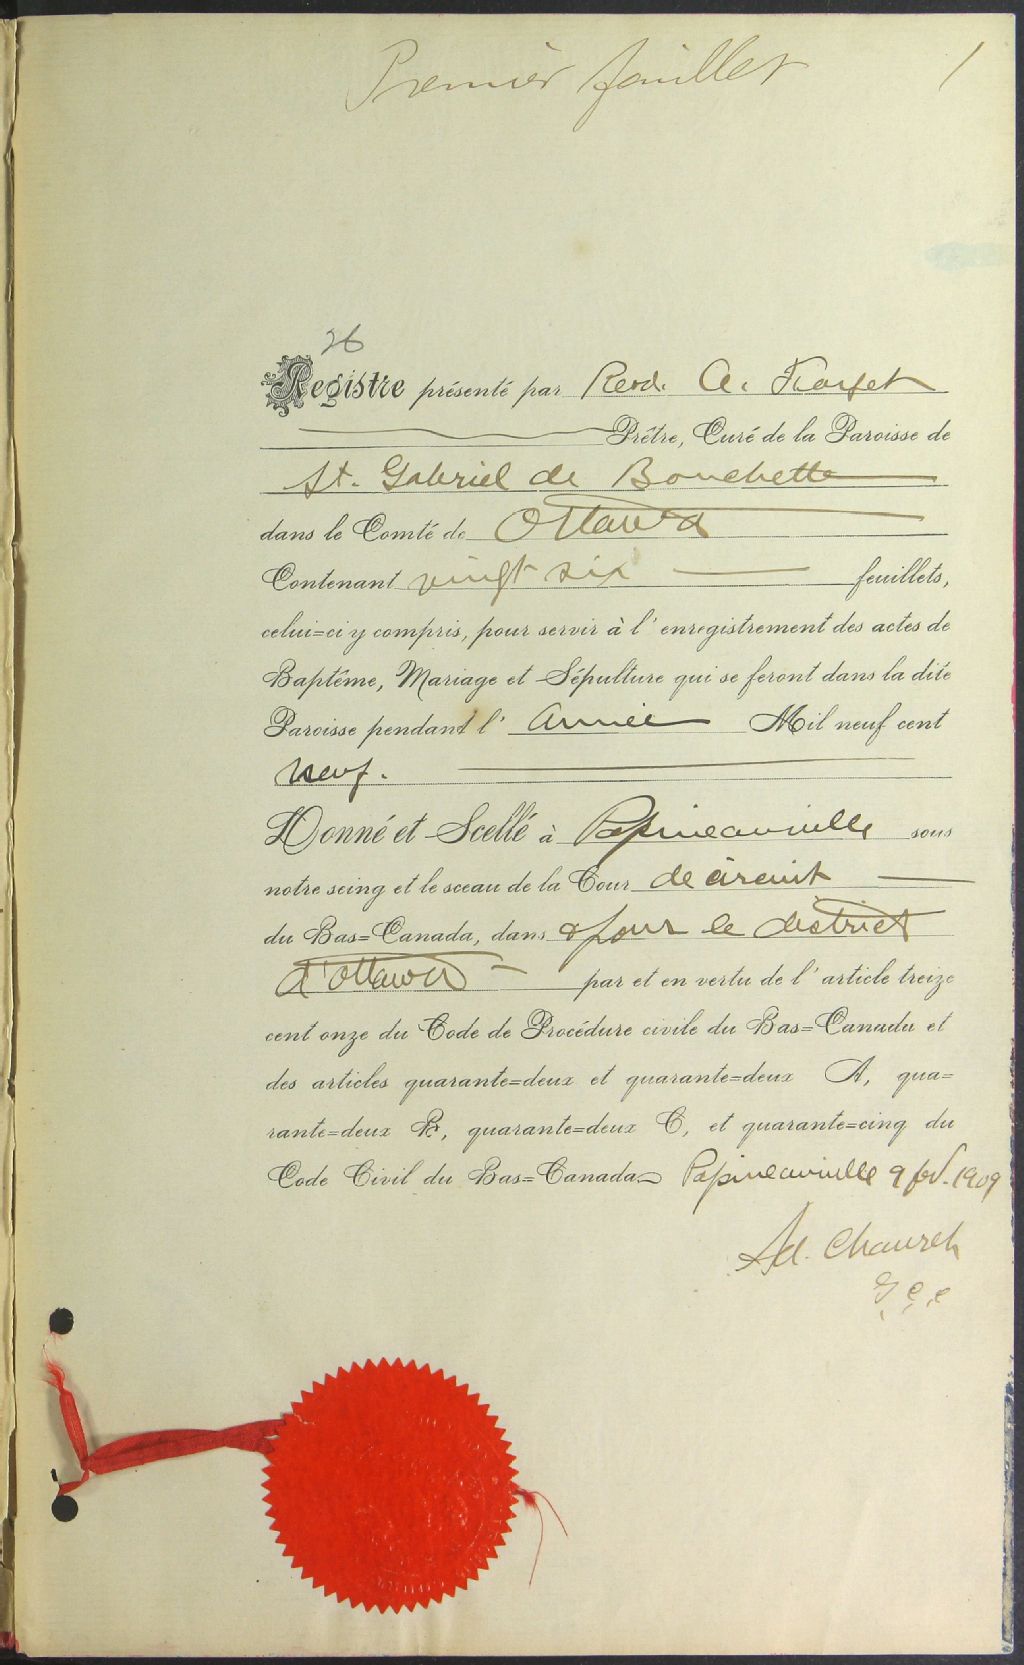 Premier feuillet 1
26
Registre présenté par Revd. A.
Prêtre, Curé de la Paroisse de
St. Gabriel de Bouchette
dans le Comté de Ottawa
Contenant vingt six feuillets,
celui=ci y compris, pour servir à l'enregistrement des actes de
Baptême, Mariage et Sépulture qui se feront dans la dite
Paroisse pendant l'année Mil neuf cent
neuf.
Donné et Scellé à Papineauville sous
notre seing et le sceau de la Cour de circuit
du Bas=Canada, dans & pour le district
d'Ottawa par et en vertu de l'article treize
cent onze du Code de Procédure civile du Bas=Canada et
des articles quarante=deux et quarante=deux A, qua=
rante=deux B, quarante=deux C, et quarante=cinq du
Code Civil du Bas=Canada Papineauville 9 fev. 1909
Ad. Chauret